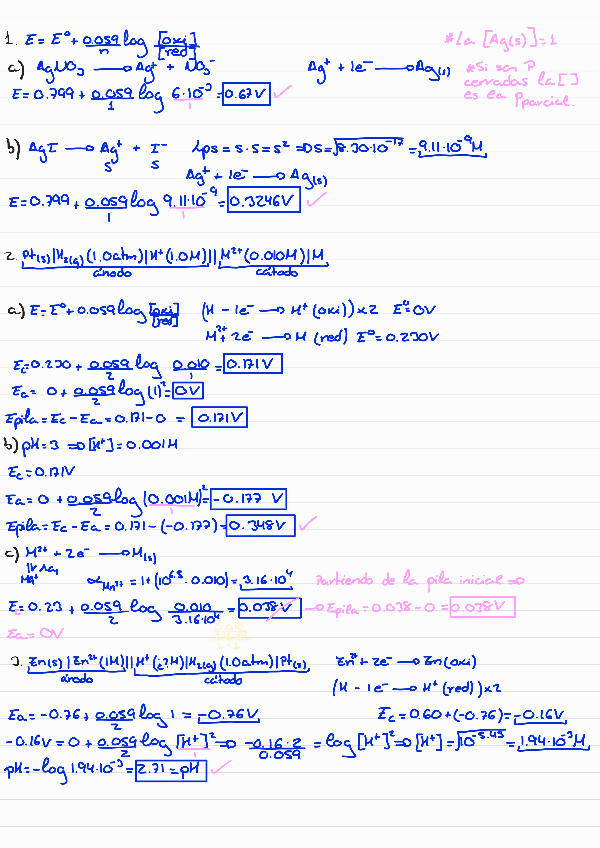 1. E = E° + 0.059/n log [oxi]/[red]
*la [Ag(s)] = 1
a) AgNO3 → Ag+ + NO3-
Ag+ + 1e- → Ag(s)
*Si son P cerradas la [ ] es la Pparcial.
E = 0.799 + 0.059/1 log 6·10^-3/1 = 0.67V ✓
b) AgI → Ag+ + I-
s s
kps = s·s = s² ⇒ s = √8.30·10^-17 = 9.11·10^-9 M
Ag+ + 1e- → Ag(s)
E = 0.799 + 0.059/1 log 9.11·10^-9/1 = 0.3246V ✓
2. Pt(s)|H2(g)(1.0atm)|H+(1.0M)||M2+(0.010M)|M
ánodo cátodo
a) E = E° + 0.059 log [oxi]/[red] (H - 1e- → H+ (oxi)) x2 E° = 0V
M2+ + 2e- → M (red) E° = 0.230V
Ec = 0.230 + 0.059/2 log 0.010/1 = 0.171V
Ea = 0 + 0.059/2 log (1)² = 0V
Epila = Ec - Ea = 0.171 - 0 = 0.171V
b) pH = 3 ⇒ [H+] = 0.001M
Ec = 0.171V
Ea = 0 + 0.059/2 log (0.001M)²/1 = -0.177 V
Epila = Ec - Ea = 0.171 - (-0.177) = 0.348V ✓
c) M2+ + 2e- → M(s)
= 1 + (10^6.5 · 0.010) = 3.16·10^4
Partiendo de la pila inicial ⇒
E = 0.23 + 0.059/2 log 0.010/3.16·10^4 = 0.038V → Epila = 0.038 - 0 = 0.038V
Ea = 0V
3. Zn(s)|Zn2+(1M)||H+(¿?M)|H2(g)(1.0atm)|Pt(s)
ánodo cátodo
Zn2+ + 2e- → Zn (oxi)
(H - 1e- → H+ (red)) x2
Ea = -0.76 + 0.059/2 log 1 = -0.76V
Ec = 0.60 + (-0.76) = -0.16V
-0.16V = 0 + 0.059/2 log [H+]²/1 ⇒ -0.16·2/0.059 = log [H+]² ⇒ [H+] = √10^-5.43 = 1.94·10^-3 M
pH = -log 1.94·10^-3 = 2.71 = pH ✓